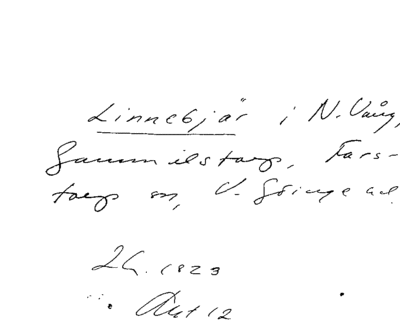 Linnebjär i N. Vång,
Gammilstorp, Fars-
torps sn, V. Göinge hd.
LH. 1823
Akt 12